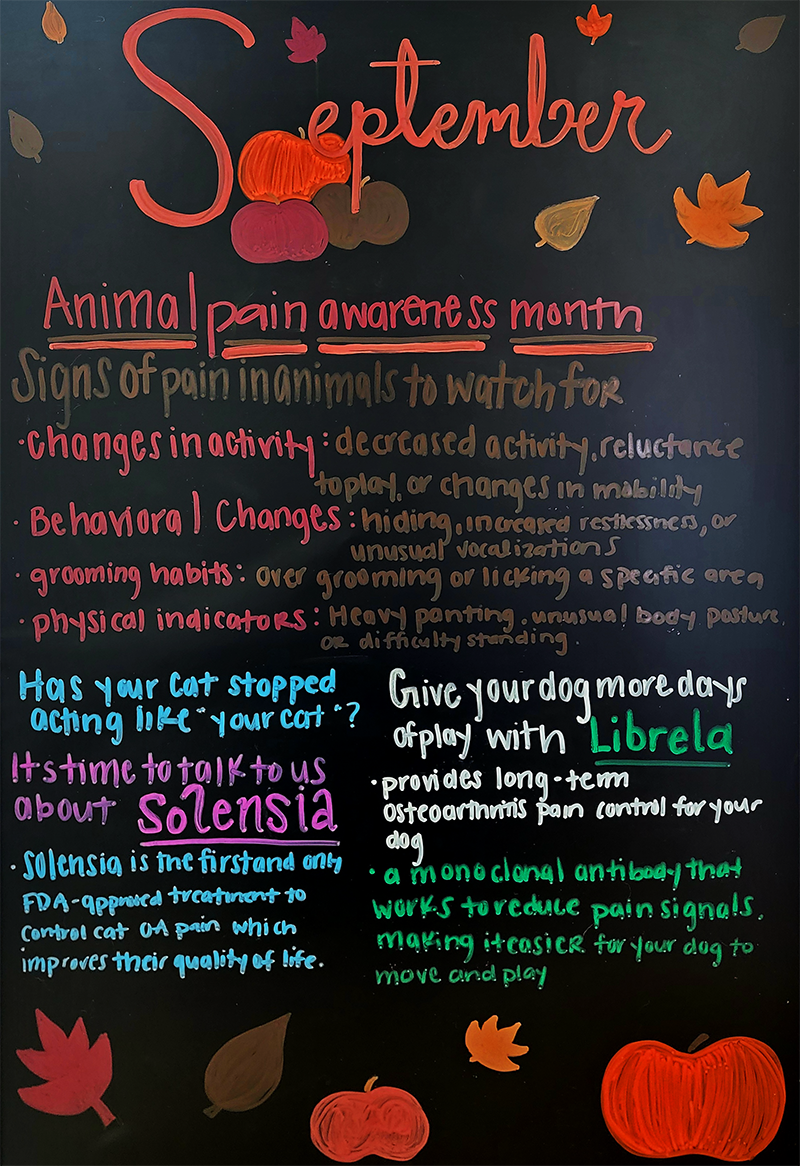 September
Animal pain awareness month
Signs of pain in animals to watch for
• Changes in activity: decreased activity, reluctance
to play, or changes in mobility
• Behavioral Changes: hiding, increased restlessness, or
unusual vocalizations
• grooming habits: over grooming or licking a specific area
• physical indicators: Heavy panting, unusual body posture,
or difficulty standing.
Has your cat stopped
acting like "your cat"?
Its time to talk to us
about Solensia
• Solensia is the first and only
FDA-approved treatment to
control cat OA pain which
improves their quality of life.
Give your dog more days
of play with Librela
• provides long-term
osteoarthritis pain control for your
dog
• a monoclonal antibody that
works to reduce pain signals,
making it easier for your dog to
move and play